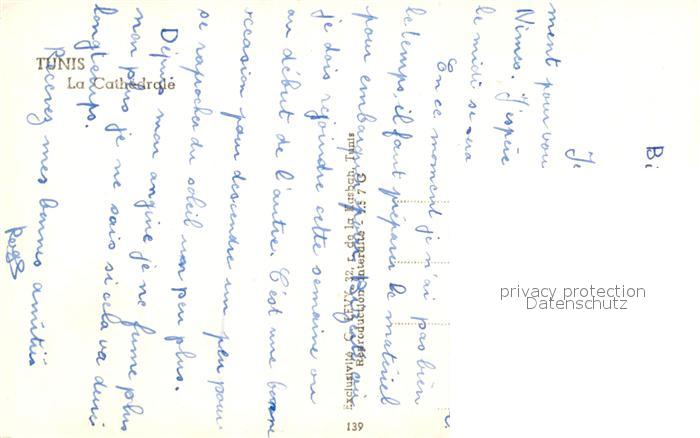 Bi
Je
ment pour vou
Nimes. J'espère
le midi se sera
En ce moment je n'ai pas bien
le temps, il faut préparer le matériel
pour embarquer pour
je dois rejoindre cette semaine ou
au début de l'autre. C'est une bonne
occasion pour descendre un peu pour
se raprocher du soleil non peu plus.
Dépuis mon angine je ne fume plus
non plus je ne sais si cela va durer
longtemps.
Recevez mes bonnes amitiés
TUNIS
La Cathédrale
Reproduction interdite
Exclusivité C. 
Tunis
139
privacy protection
Datenschutz